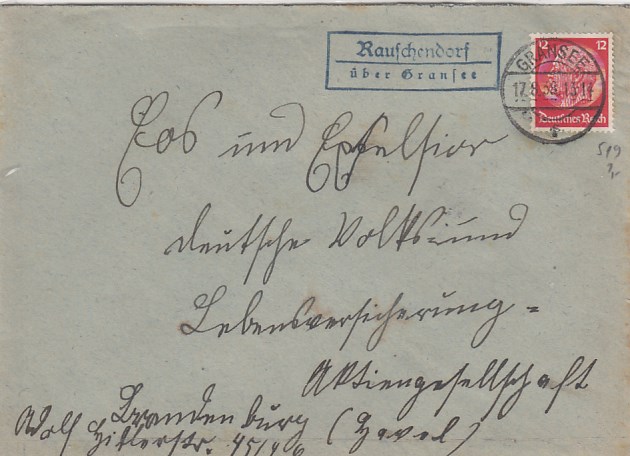 Rauschendorf
über Gransee
12 12
GRANSEE
17.8.
Deutsches Reich
519
Eos und Exselsior
deutsche Volks- und
Lebensversicherung-
Aktiengesellschaft
Brandenburg (Havel)
Adolf Hitlerstr. 45/46